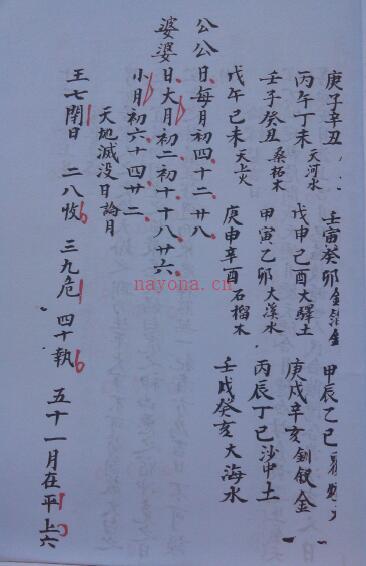 庚子辛丑 壬寅癸卯金箔金 甲辰乙巳
丙午丁未天河水 戊申己酉大驛土 庚戌辛亥釧釵金
壬子癸丑桑柘木 甲寅乙卯大溪水 丙辰丁巳沙中土
戊午己未天上火 庚申辛酉石榴木 壬戌癸亥大海水
公公日每月初四十二廿八
婆婆日大月初二初十十八廿六
小月初六十四廿二
天地滅没日論月
王七閉日 二八收 三九危 四十執 五十一月在平上六
nayona.cn